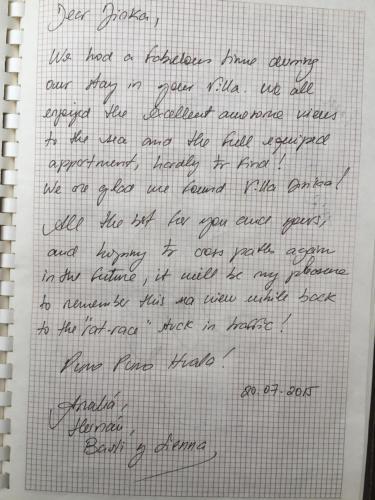 Dear Jinka,
We had a fabulous time during
our stay in your Villa. We all
enjoyed the excellent awesome views
to the sea and the full equiped
appartment, hardly to find!
We are glad we found Villa Dinka!
All the best for you and yours,
and hoping to cross paths again
in the future, it will be my pleasure
to remember this sea view while back
to the "rat-race" stuck in traffic!
Puno Puno Hvala!
20.07.2015
Analiá,
Hernán,
y Sienna